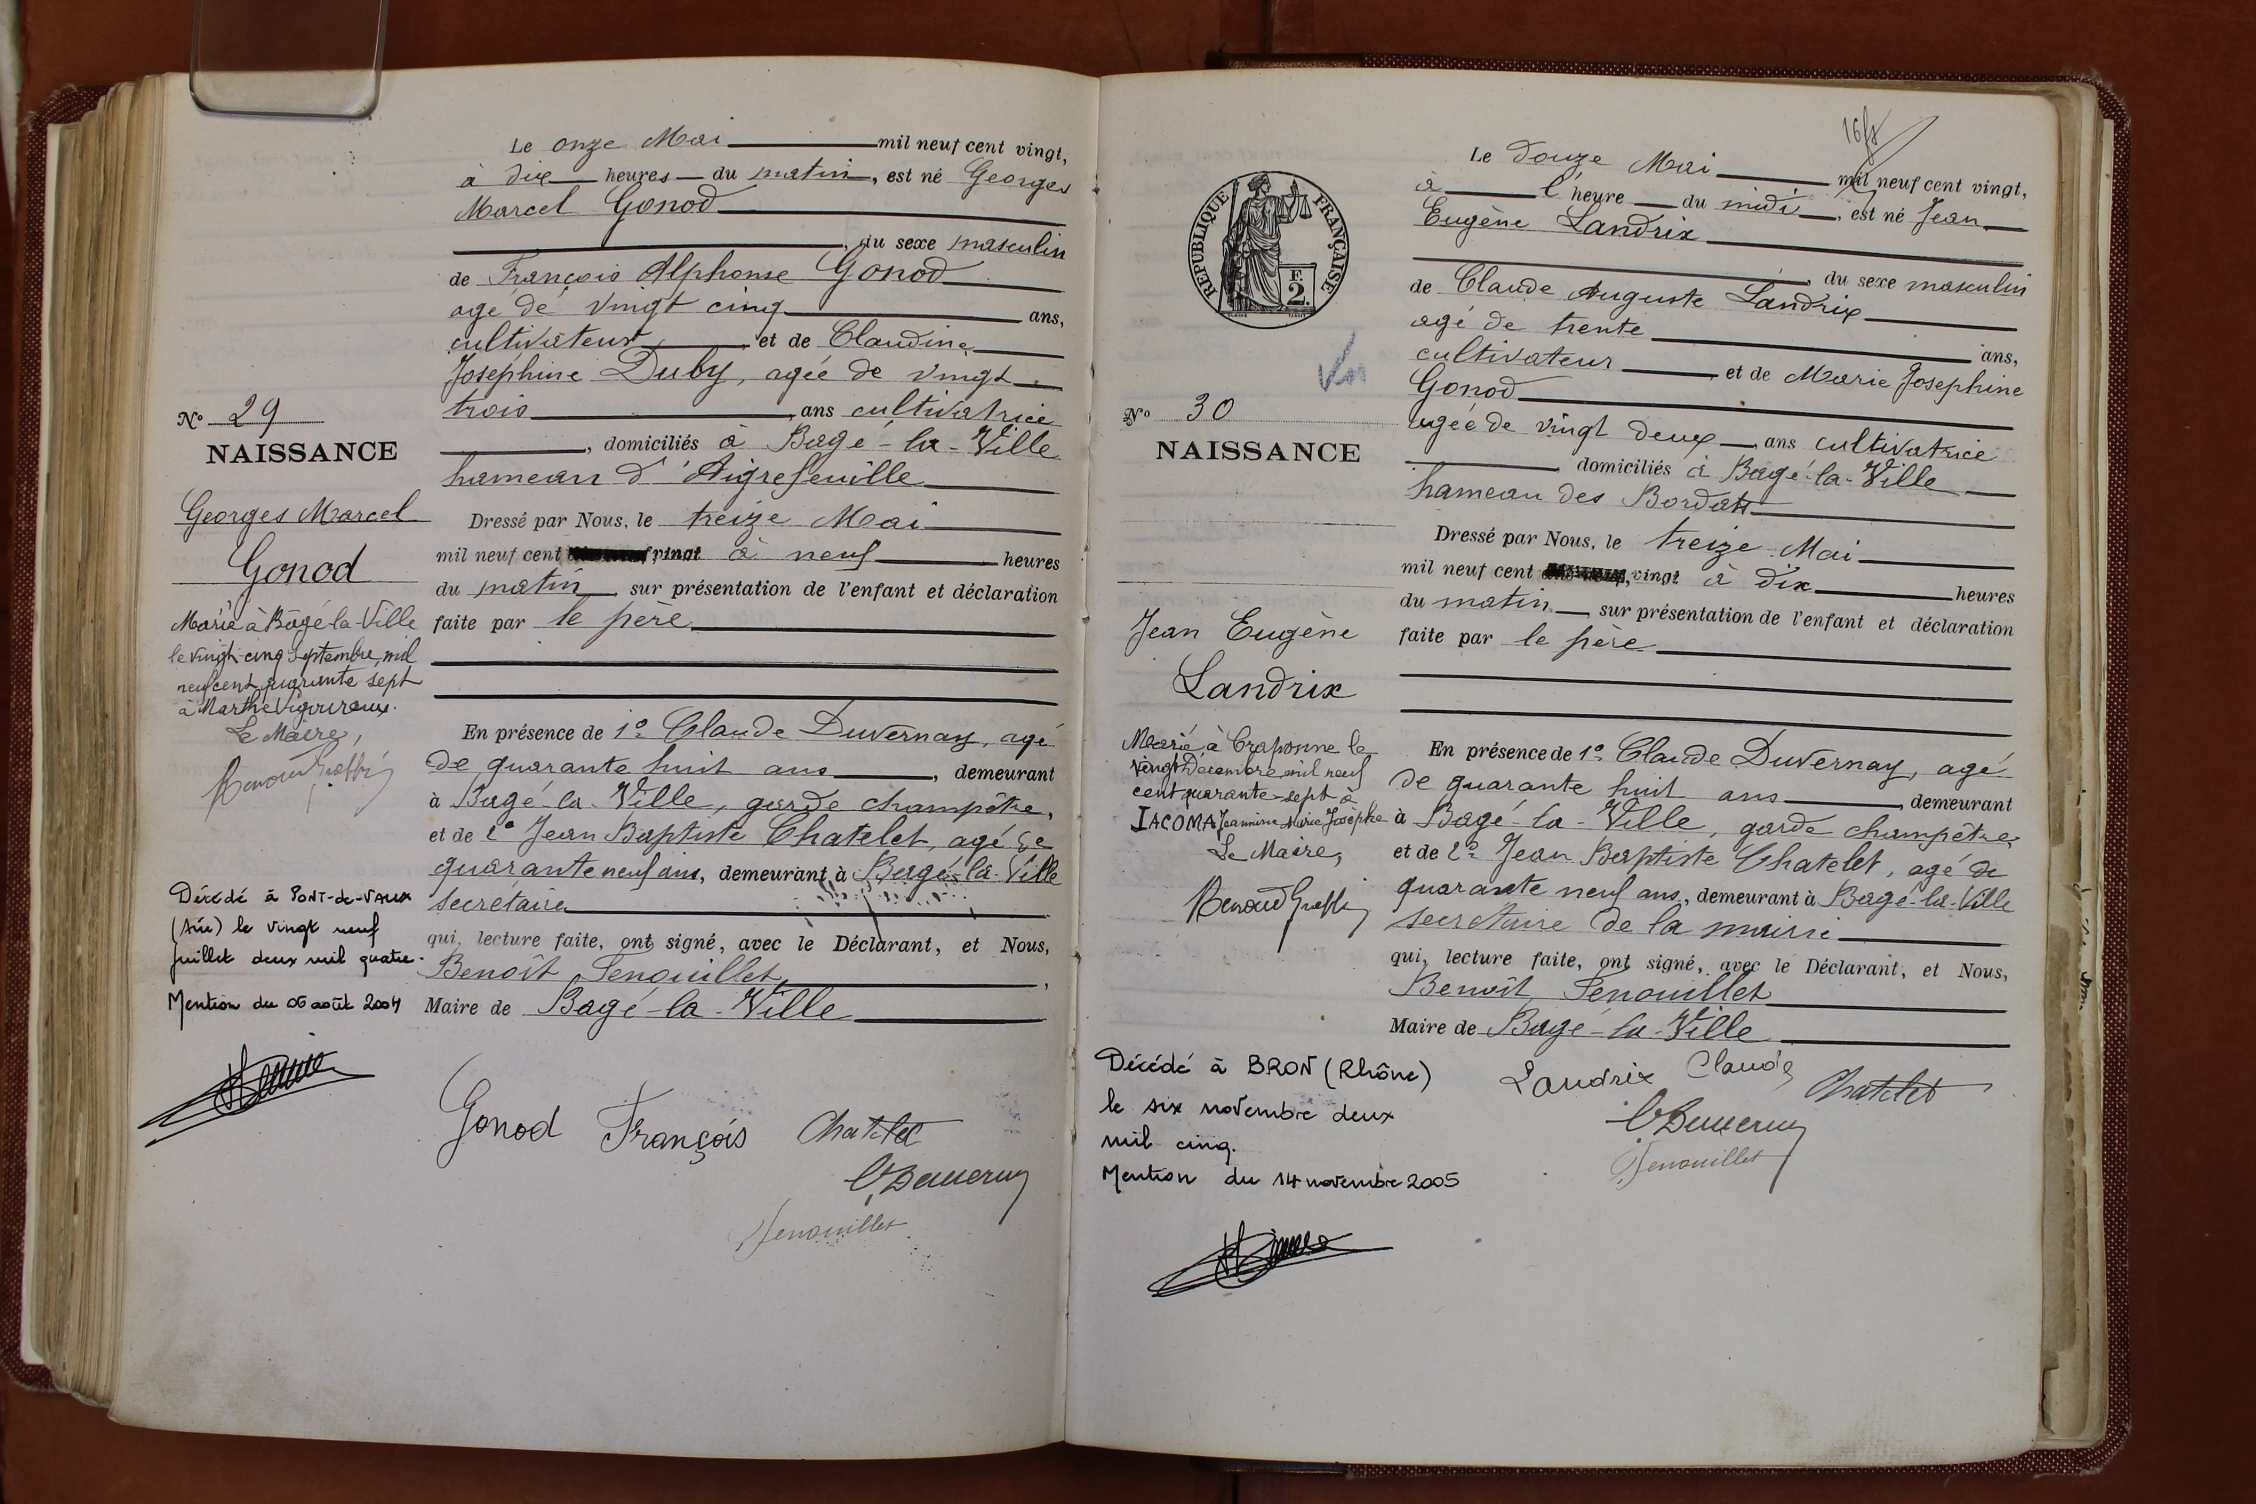 Le onze Mai mil neuf cent vingt,
à dix heures du matin, est né Georges
Marcel Gonod
, du sexe masculin
de François Alphonse Gonod
agé de vingt cinq ans,
cultivateur et de Claudine
Joséphine Duby, agée de vingt
trois ans cultivatrice
, domiciliés à Bagé-la-Ville
hameau d'Aigrefeuille
Dressé par Nous, le treize Mai
mil neuf cent vingt à neuf heures
du matin sur présentation de l'enfant et déclaration
faite par le père
En présence de 1° Claude Duvernay, agé
de quarante huit ans, demeurant
à Bagé-la-Ville, garde champêtre,
et de 2° Jean Baptiste Chatelet, agé de
quarante neuf ans, demeurant à Bagé-la-Ville
secrétaire
qui, lecture faite, ont signé, avec le Déclarant, et Nous,
Benoît Fenouillet,
Maire de Bagé-la-Ville
Gonod François Chatelet
Fenouillet
N° 29
NAISSANCE
Georges Marcel
Gonod
Marié à Bâgé-la-Ville
le vingt-cinq septembre mil
neuf cent quarante sept
à Marthe Vigoureux.
Le Maire,
Décédé à PONT-de-VAUX
(Ain) le vingt neuf
juillet deux mil quatre.
Mention du 06 août 2004
16
Le douze Mai mil neuf cent vingt,
à l'heure du midi, est né Jean
Eugène Landrix
, du sexe masculin
de Claude Auguste Landrix
agé de trente ans,
cultivateur et de Marie Josephine
Gonod
agée de vingt deux ans cultivatrice
domiciliés à Bagé-la-Ville
hameau des Bordats
Dressé par Nous, le treize Mai
mil neuf cent vingt à dix heures
du matin sur présentation de l'enfant et déclaration
faite par le père
En présence de 1° Claude Duvernay, agé
de quarante huit ans, demeurant
à Bagé-la-Ville, garde champêtre
et de 2° Jean Baptiste Chatelet, agé de
quarante neuf ans, demeurant à Bagé-la-Ville
secrétaire de la mairie
qui, lecture faite, ont signé, avec le Déclarant, et Nous,
Benoît Fenouillet
Maire de Bagé-la-Ville
Landrix Claude Chatelet
Fenouillet
RÉPUBLIQUE FRANÇAISE
F.
2.
Vu
N° 30
NAISSANCE
Jean Eugène
Landrix
Marié à Craponne le
vingt Décembre mil neuf
cent quarante-sept à
IACOMA Jeannine Marie Josèphe
Le Maire,
Décédé à BRON (Rhône)
le six novembre deux
mil cinq.
Mention du 14 novembre 2005